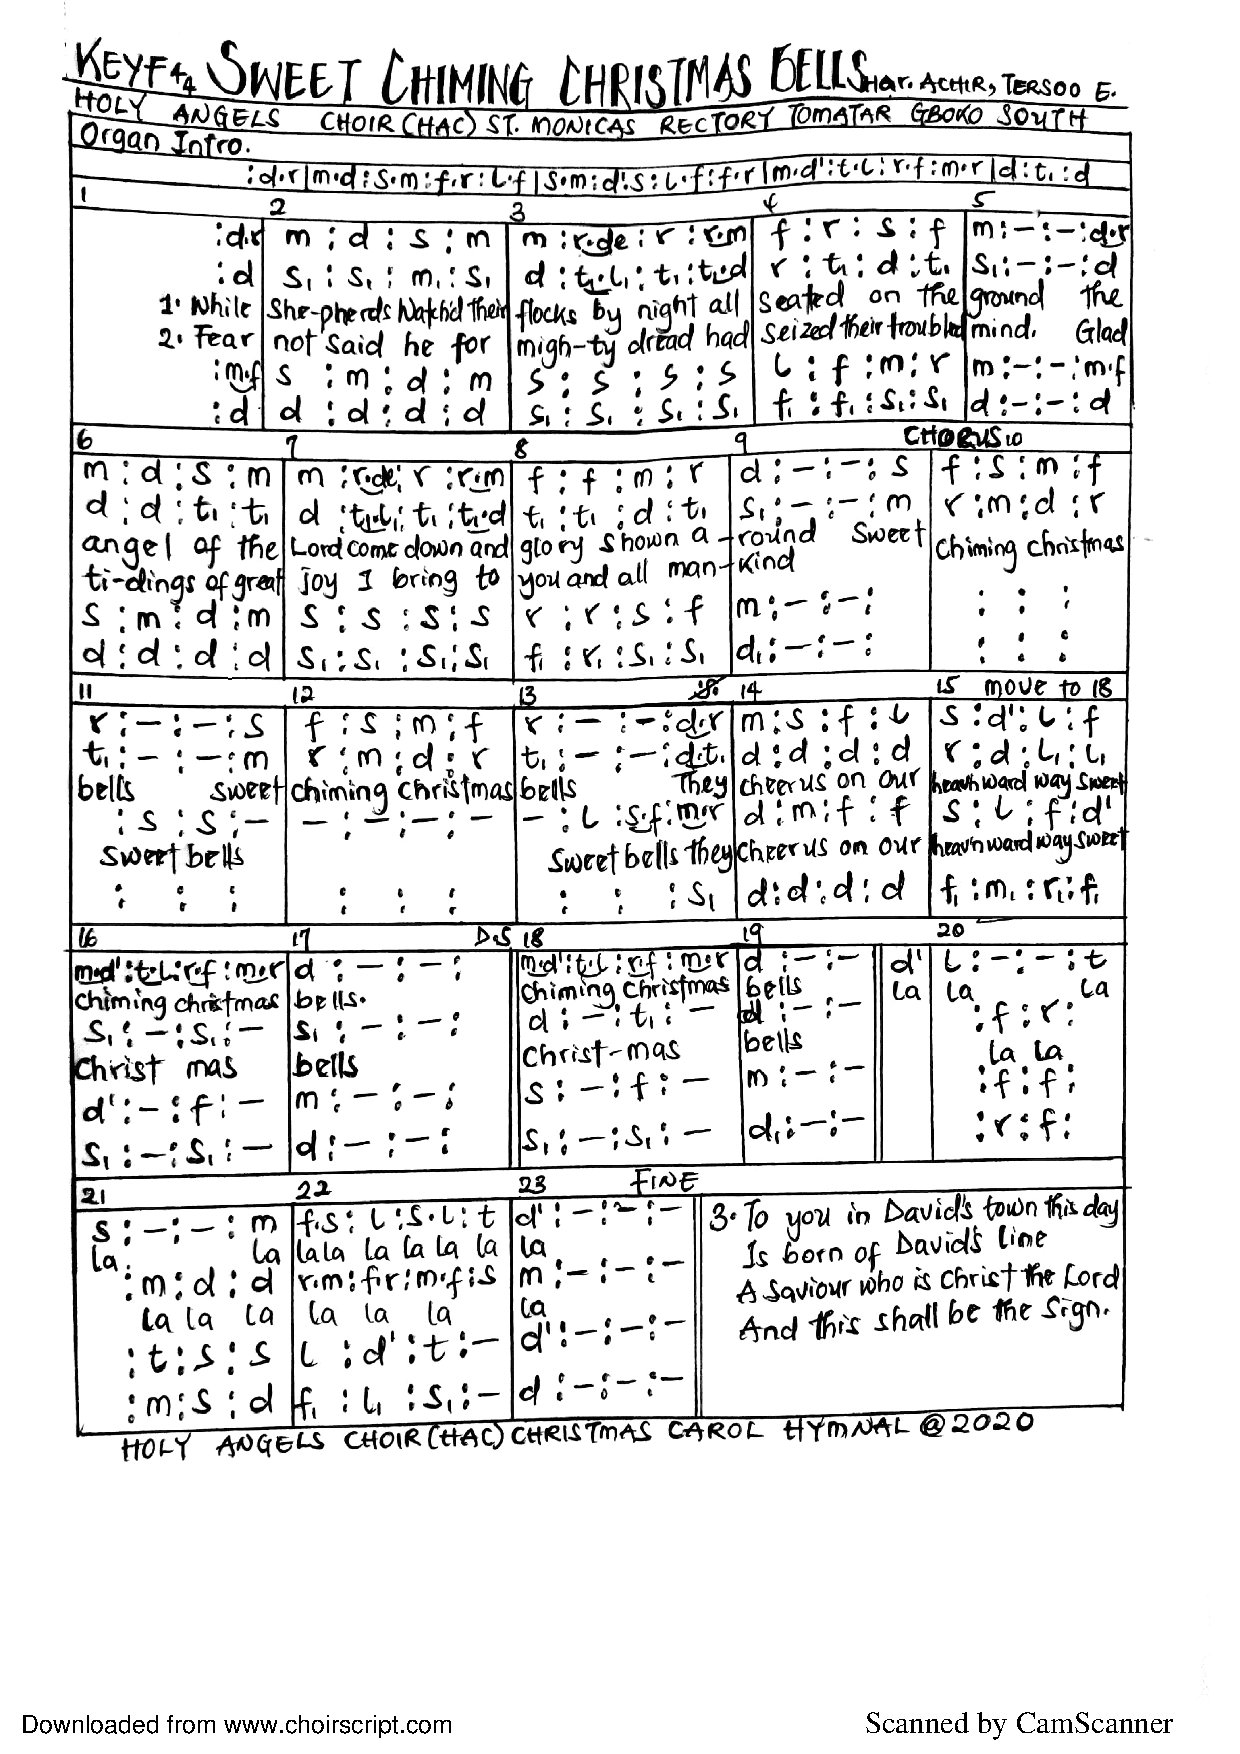 KEY F 4/4 SWEET CHIMING CHRISTMAS BELLS Har. ACHIR, TERSOO E.
HOLY ANGELS CHOIR (HAC) ST. MONICAS RECTORY TOMATAR GBOKO SOUTH
Organ Intro.
:d.r|m.d:s.m:f.r:l.f|s.m:d'.s:l.f:f.r|m.d':t.l:r.f:m.r|d:t₁:d
1 2 3 4 5
:d.r | m:d:s:m | m:r.de:r:r.m | f:r:s:f | m:-:-:d.r
:d | s₁:s₁:m₁:s₁ | d:t₁.l₁:t₁:t₁.d | r:t₁:d:t₁ | s₁:-:-:d
1. While | She-pherds Watch'd their | flocks by night all | seated on the | ground the
2. Fear | not said he for | migh-ty dread had | seized their troubled | mind. Glad
:m.f | s:m:d:m | s:s:s:s | l:f:m:r | m:-:-:m.f
:d | d:d:d:d | s₁:s₁:s₁:s₁ | f₁:f₁:s₁:s₁ | d:-:-:d
6 7 8 9 CHORUS 10
m:d:s:m | m:r.de:r:r.m | f:f:m:r | d:-:-:s | f:s:m:f
d:d:t₁:t₁ | d:t₁.l₁:t₁:t₁.d | t₁:t₁:d:t₁ | s₁:-:-:m | r:m:d:r
angel of the | Lord come down and | glory shown a- | round Sweet | chiming christmas
ti-dings of great | joy I bring to | you and all man- | kind
s:m:d:m | s:s:s:s | r:r:s:f | m:-:-: | : : :
d:d:d:d | s₁:s₁:s₁:s₁ | f₁:r₁:s₁:s₁ | d₁:-:-: | : : :
11 12 13 14 15 move to 18
r:-:-:s | f:s:m:f | r:-:-:d.r | m:s:f:l | s:d':l:f
t₁:-:-:m | r:m:d:r | t₁:-:-:d.t₁ | d:d:d:d | r:d:l₁:l₁
bells sweet | chiming christmas | bells They | cheer us on our | heav'n ward way sweet
:s:s:- | -:-:-:- | -:l:s.f:m.r | d:m:f:f | s:l:f:d'
sweet bells | Sweet bells they | cheer us on our | heav'n ward way sweet
: : : | : : : | : : :s₁ | d:d:d:d | f₁:m₁:r₁:f₁
16 17 D.S 18 19 20
m.d':t.l:r.f:m.r | d:-:-: | m.d':t.l:r.f:m.r | d:-:- | d' | l:-:-:t
chiming christmas | bells. | chiming Christmas | bells | la | la la
s₁:-:s₁:- | s₁:-:-: | d:-:t₁:- | d:-:- | :f:r:
Christ mas | bells | Christ-mas | bells | la la
d':-:f:- | m:-:-: | s:-:f:- | m:-:- | :f:f:
s₁:-:s₁:- | d:-:-: | s₁:-:s₁:- | d₁:-:- | :r:f:
21 22 23 FINE
s:-:-:m | f.s:l:s.l:t | d':-:-:-
la. la | la la la la la la la | la
:m:d:d | r.m:f.r:m.f:s | m:-:-:-
la la la | la la la | la
:t:s:s | l:d':t:- | d':-:-:-
:m:s:d | f₁:l₁:s₁:- | d:-:-:-
3. To you in David's town this day
Is born of David's line
A Saviour who is christ the Lord
And this shall be the sign.
HOLY ANGELS CHOIR (HAC) CHRISTMAS CAROL HYMNAL @ 2020
Downloaded from www.choirscript.com
Scanned by CamScanner